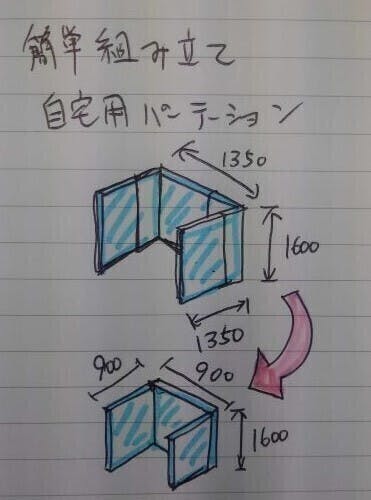 簡単組み立て
自宅用パーテーション
1350
1600
1350
900
900
1600